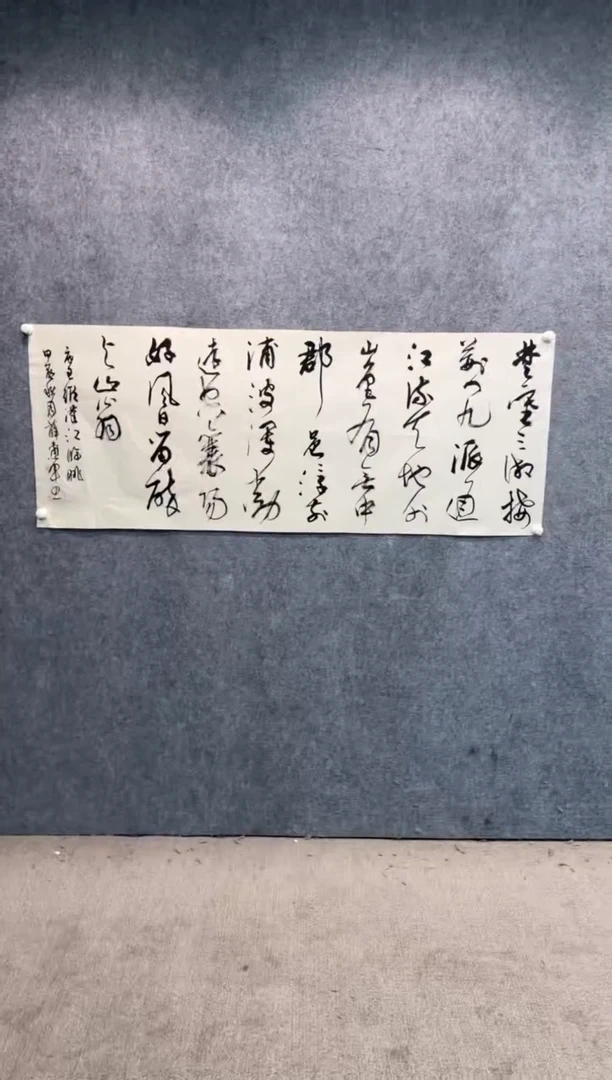 楚塞三湘接
荆门九派通
江流天地外
山色有無中
郡邑浮前
浦波澜动
遠空襄陽
好風日留醉
与山翁
唐王維漢江临眺
甲辰秋月薛